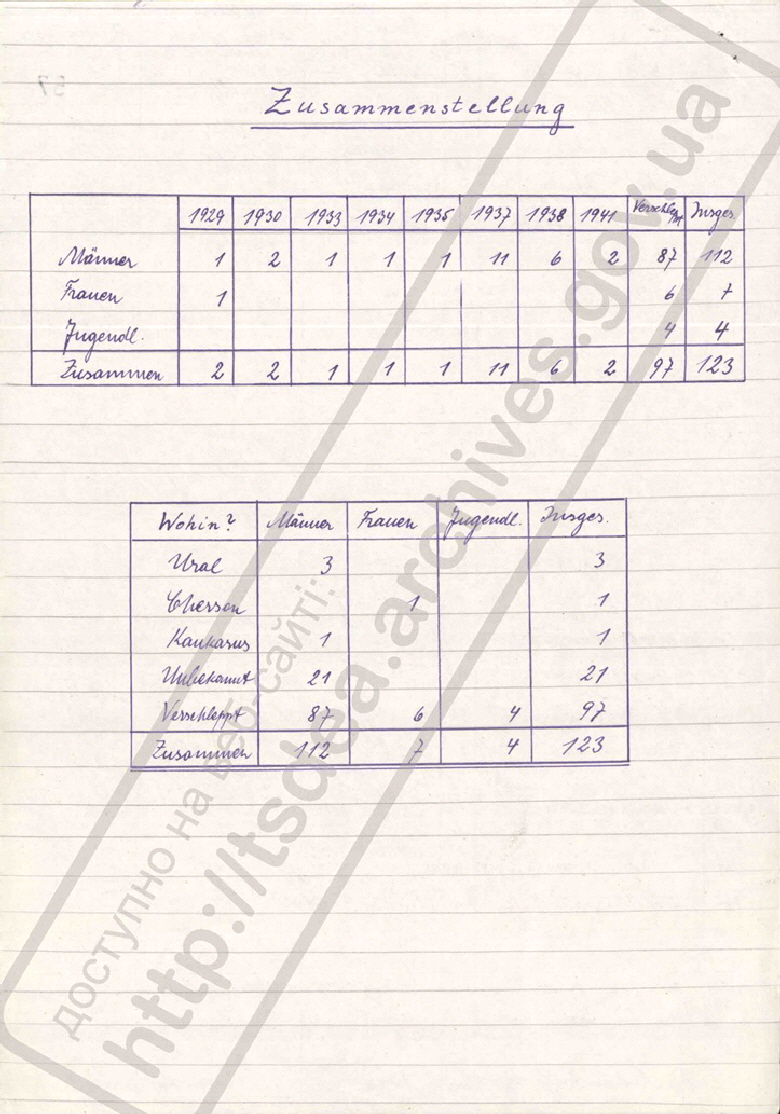 Zusammenstellung
1929 1930 1933 1934 1935 1937 1938 1941 Verschleppt Insges.
Männer 1 2 1 1 1 11 6 2 87 112
Frauen 1 6 7
Jugendl. 4 4
Zusammen 2 2 1 1 1 11 6 2 97 123
Wohin? Männer Frauen Jugendl. Insges.
Ural 3 3
Cherson 1 1
Kaukasus 1 1
Unbekannt 21 21
Verschleppt 87 6 4 97
Zusammen 112 7 4 123
доступно на веб-сайті:
http://tsdea.archives.gov.ua